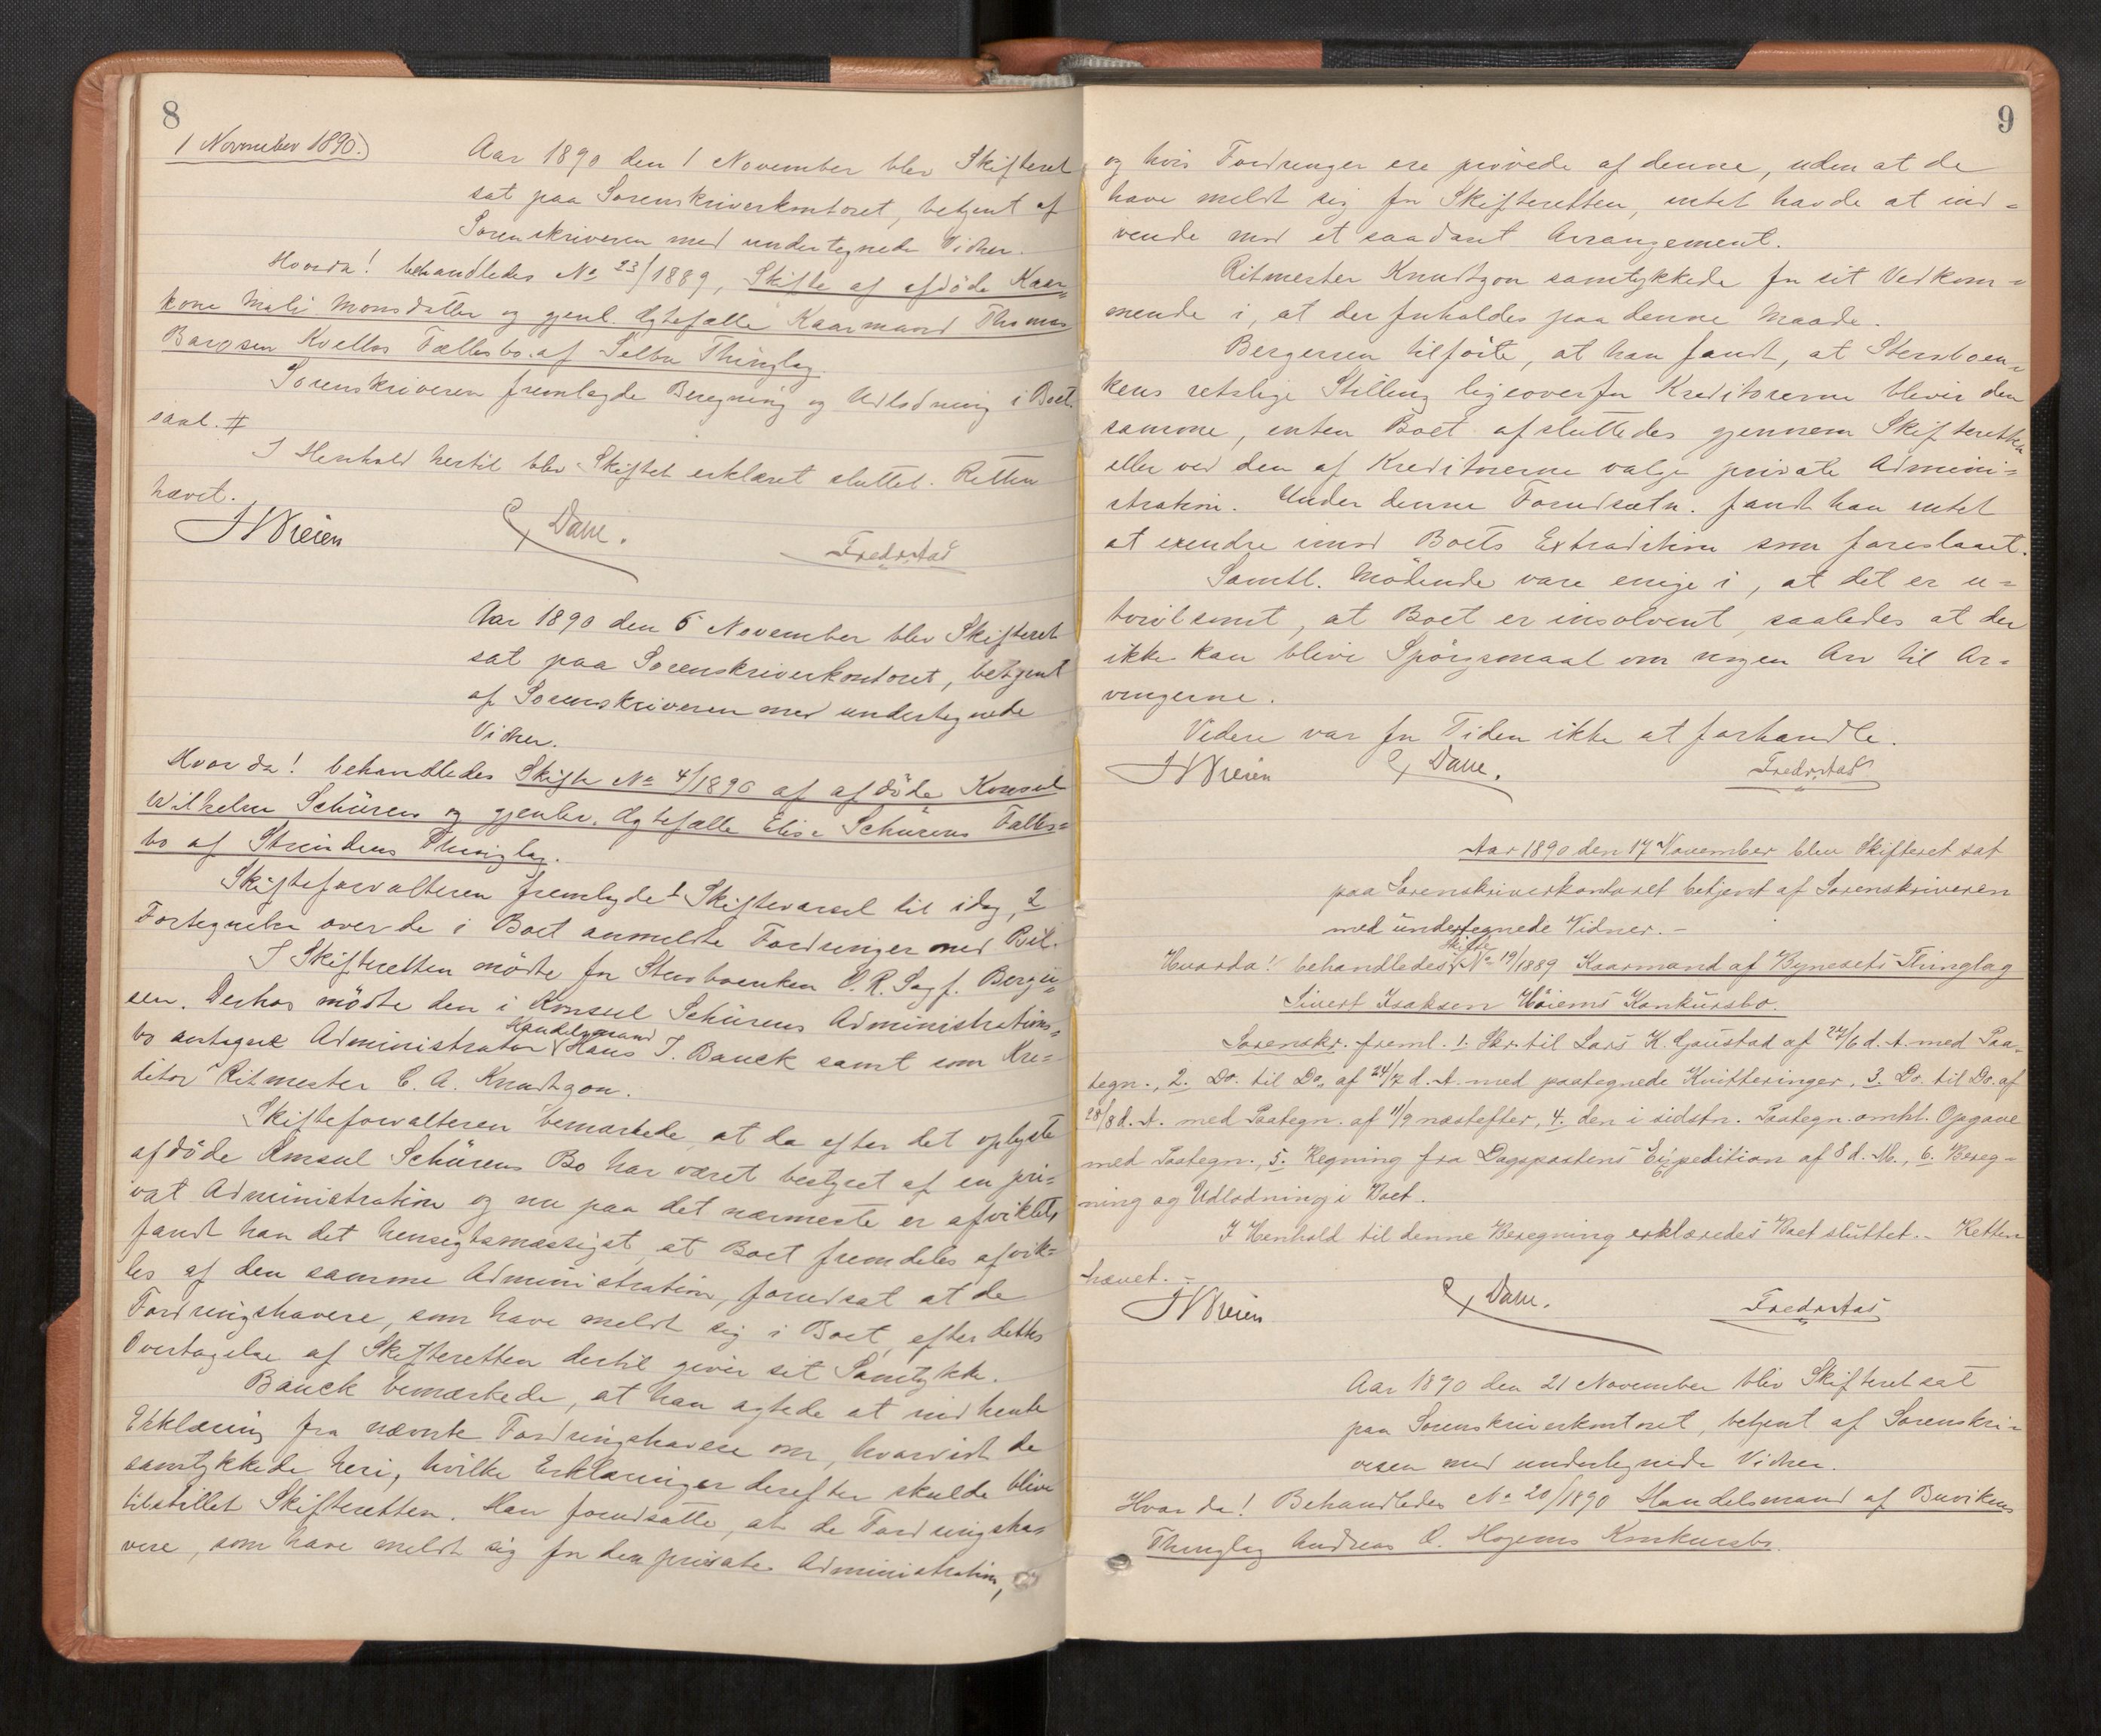 8
1 November 1890.)
Aar 1890 den 1 November blev Skifteret
sat paa Sorenskriverkontoret, betjent af
Sorenskriveren med undertegnede Vidner.
Hvorda! behandledes No 23/1889, Skifte af afdöde Kaar-
kone Mali Monsdatter og gjenl. Ægtefælle Kaarmand Thomas
Kvellos Fællesbo af Selbu Thinglag.
Sorenskriveren fremlagde Beregning og Udlodning i Boet
saal. #
I Henhold hertil blev Skiftet erklæret sluttet. Retten
hævet.
Dave. Fredrstad
Aar 1890 den 6 November blev Skifteret
sat paa Sorenskriverkontoret, betjent
af Sorenskriveren med undertegnede
Vidner.
Hvorda! behandledes Skifte No 4/1890 af afdöde Konsul
Wilhelm Schürens og gjenlev. Ægtefælle Elise Schürens Fælles-
bo af Strindens Thinglag.
Skifteforvalteren fremlagde 1 Skiftevarsel til idag, 2
Fortegnelse over de i Boet anmeldte Fordringer med Bil.
I Skifteretten mödte for Stervboenken O. R. Sagf. Berger-
sen. Derhos mödte den i Konsul Schürens Administrations-
bo antagne Administrator Handelsmand Hans J. Bauck samt som Kre-
ditor Ritmester C. A. Knudtzon.
Skifteforvalteren bemærkede, at da efter det oplyste
afdöde Konsul Schürens Bo har været bestyret af en pri-
vat Administration og nu paa det nærmeste er afviklet,
fandt han det hensigtsmæssigst, at Boet fremdeles afvik-
les af den samme Administration, forudsat at de
Fordringshavere, som have meldt sig i Boet, efter dettes
Overtagelse af Skifteretten dertil giver sit Samtykke.
Bauck bemærkede, at han agtede at indhente
Erklæring fra nævnte Fordringshavere om, hvorvidt de
samtykkede heri, hvilke Erklæringer derefter skulde blive
tilstillet Skifteretten. Han forudsatte, at de Fordringsha-
vere, som have meldt sig for den private Administration,
9
og hvis Fordringer ere prövede af denne, uden at de
have meldt sig for Skifteretten, intet havde at ind-
vende mod et saadant Arrangement.
Ritmester Knudtzon samtykkede for sit Vedkom-
mende i, at der forholdes paa denne Maade.
Bergersen tilföiede, at han fandt, at Stervboen-
kens retslige Stilling ligeoverfor Kreditorerne bliver den
samme, enten Boet afsluttedes gjennem Skifteretten
eller ved den af Kreditorerne valgte private Admini-
stration. Under denne Forudsætn. fandt han intet
at erindre imod Boets Extradition som foreslaaet.
Samtl. Mödende vare enige i, at det er u-
tvivlsomt, at Boet er insolvent, saaledes at der
ikke kan blive Spörgsmaal om nogen Arv til Ar-
vingerne.
Videre var for Tiden ikke at forhandle.
Dave. Fredrstad
Aar 1890 den 17 November blev Skifteret sat
paa Sorenskriverkontoret betjent af Sorenskriveren
med undertegnede Vidner. -
Hvorda! behandledes Skifte No 19/1889 Kaarmand af Bynesets Thinglag
Sivert Isaksen Höiems Konkursbo.
Sorenskr. freml. 1. Skr. til Lars K. Gaustad af 27/6 d. A. med Paa-
tegn., 2. Do. til Do. af 24/7 d. A. med paategnede Kvitteringer, 3. Do. til Do. af
28/8 d. A. med Paategn. af 11/9 næstefter, 4. den i sidstn. Paategn. omhl. Opgave
med Paategn., 5. Regning fra Dagspostens Expedition af 8 d. M., 6. Bereg-
ning og Udlodning i Boet.
I Henhold til denne Beregning erklæredes Boet sluttet. - Retten
hævet. -
Dave. Fredrstad
Aar 1890 den 21 November blev Skifteret sat
paa Sorenskriverkontoret, betjent af Sorenskri-
veren med undertegnede Vidner.
Hvorda! Behandledes No 20/1890 Handelsmand af Buvikens
Thinglag Andreas O. Konkursbo.